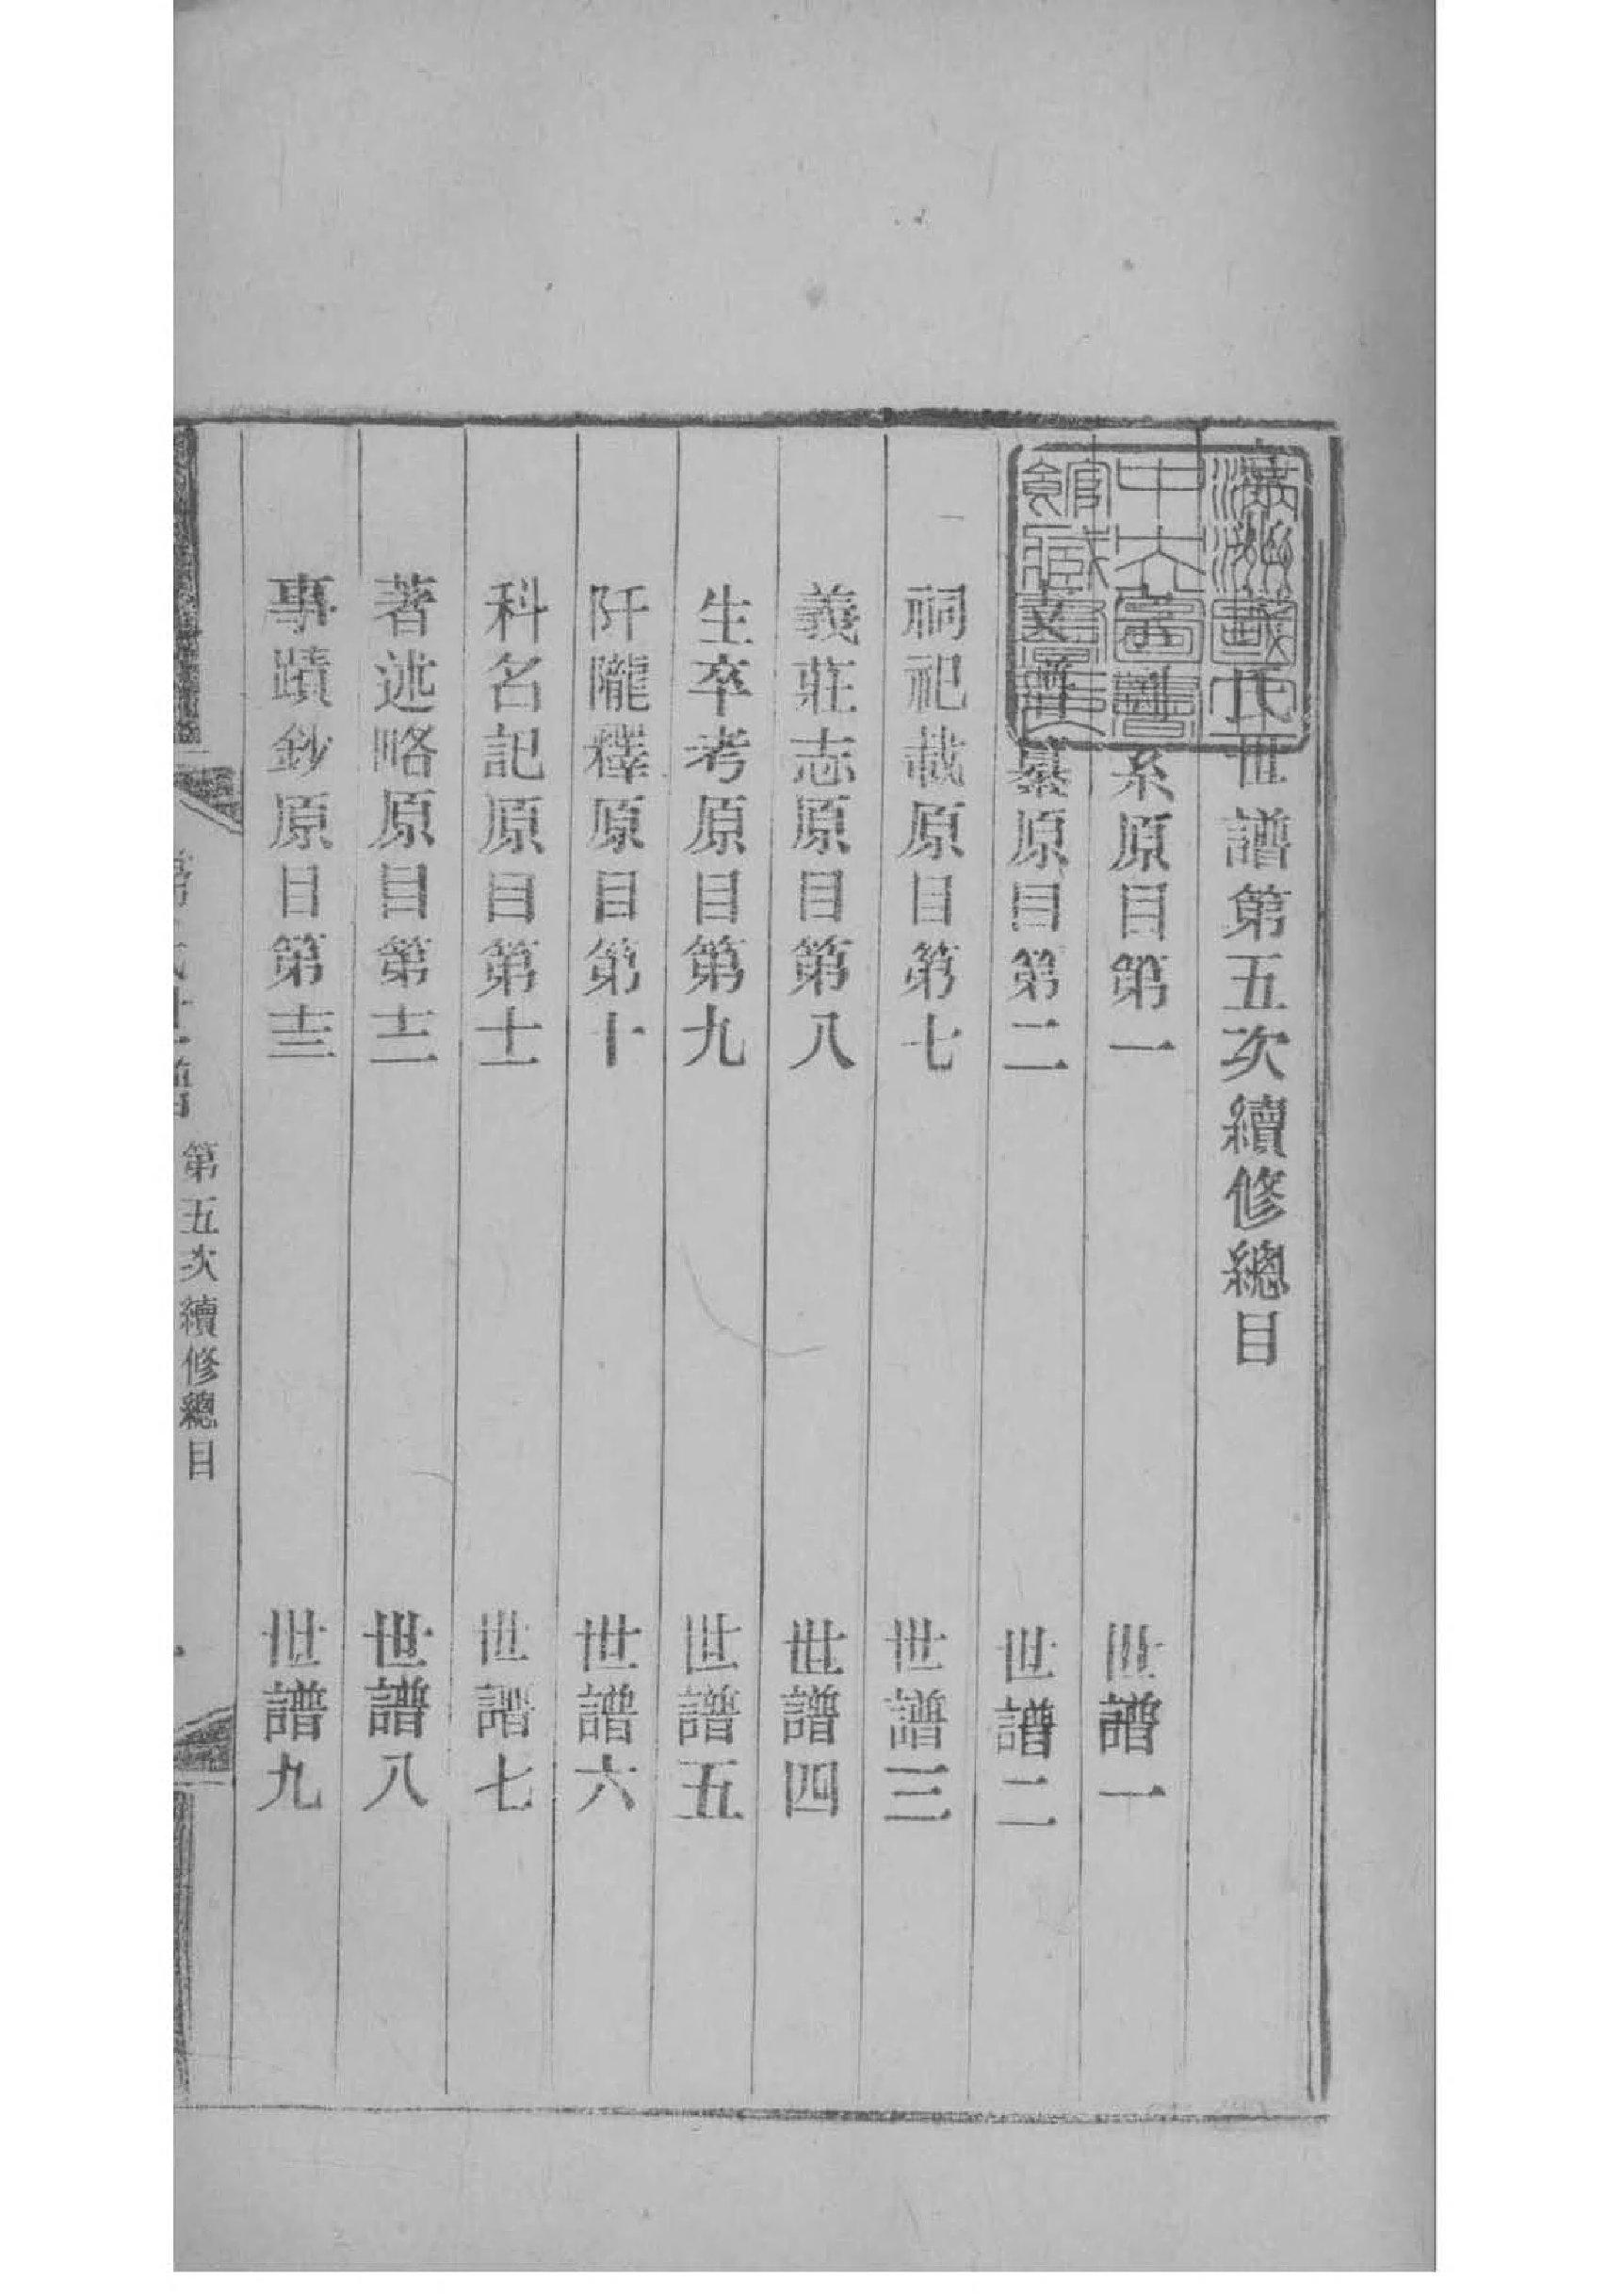 氏世譜第五次續修總目
系原目第一 世譜一
纂原目第二 世譜二
祠祀載原目第七 世譜三
義莊志原目第八 世譜四
生卒考原目第九 世譜五
阡隴釋原目第十 世譜六
科名記原目第十一 世譜七
著述略原目第十二 世譜八
事蹟鈔原目第十三 世譜九
第五次續修總目